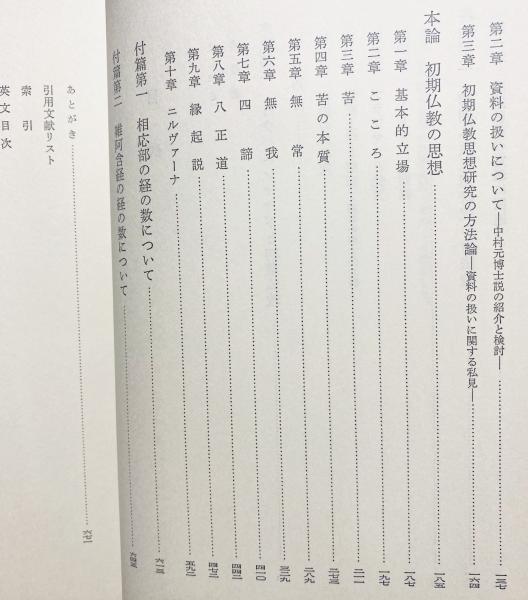 第二章 資料の扱いについて―中村元博士説の紹介と検討― 一三七
第三章 初期仏教思想研究の方法論―資料の扱いに関する私見― 一六四
本論 初期仏教の思想 一八五
第一章 基本的立場 一八七
第二章 こころ 一九七
第三章 苦 二一一
第四章 苦の本質 二八九
第五章 無常 三三九
第六章 無我 四一〇
第七章 四諦 四四二
第八章 八正道 四七二
第九章 縁起説
第十章 ニルヴァーナ 五九二
付篇第一 相応部の経の数について 六一三
付篇第二 雑阿含経の経の数について 六四五
あとがき 六七一
引用文献リスト
索引
英文目次